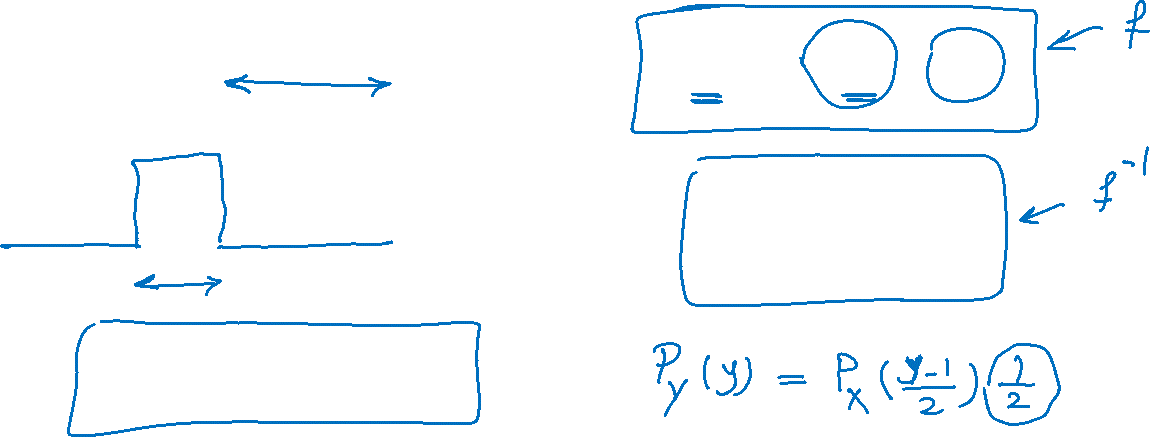 f
f⁻¹
P_y(y) = P_x((y-1)/2) (1/2)